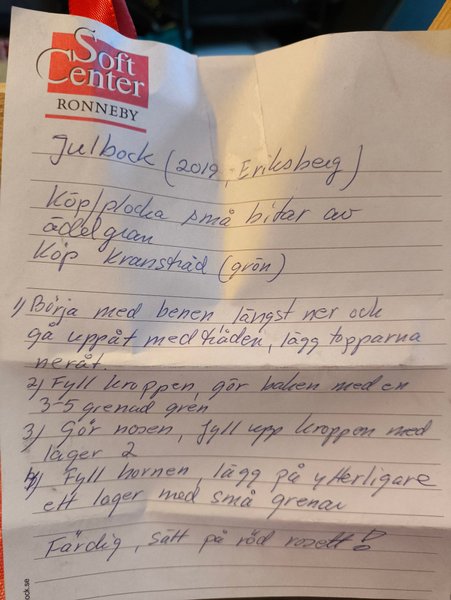 Soft
Center
RONNEBY
Julbock (2019, Eriksberg)
Köp/plocka små bitar av
ädelgran
Köp kranstråd (grön)
1) Börja med benen, längst ner och
gå uppåt med tråden, lägg topparna
neråt.
2) Fyll kroppen, gör baken med en
3-5 grenad gren
3) Gör nosen, fyll upp kroppen med
lager 2
4) Fyll hornen, lägg på ytterligare
ett lager med små grenar
Färdig, sätt på röd rosett!
ock.se